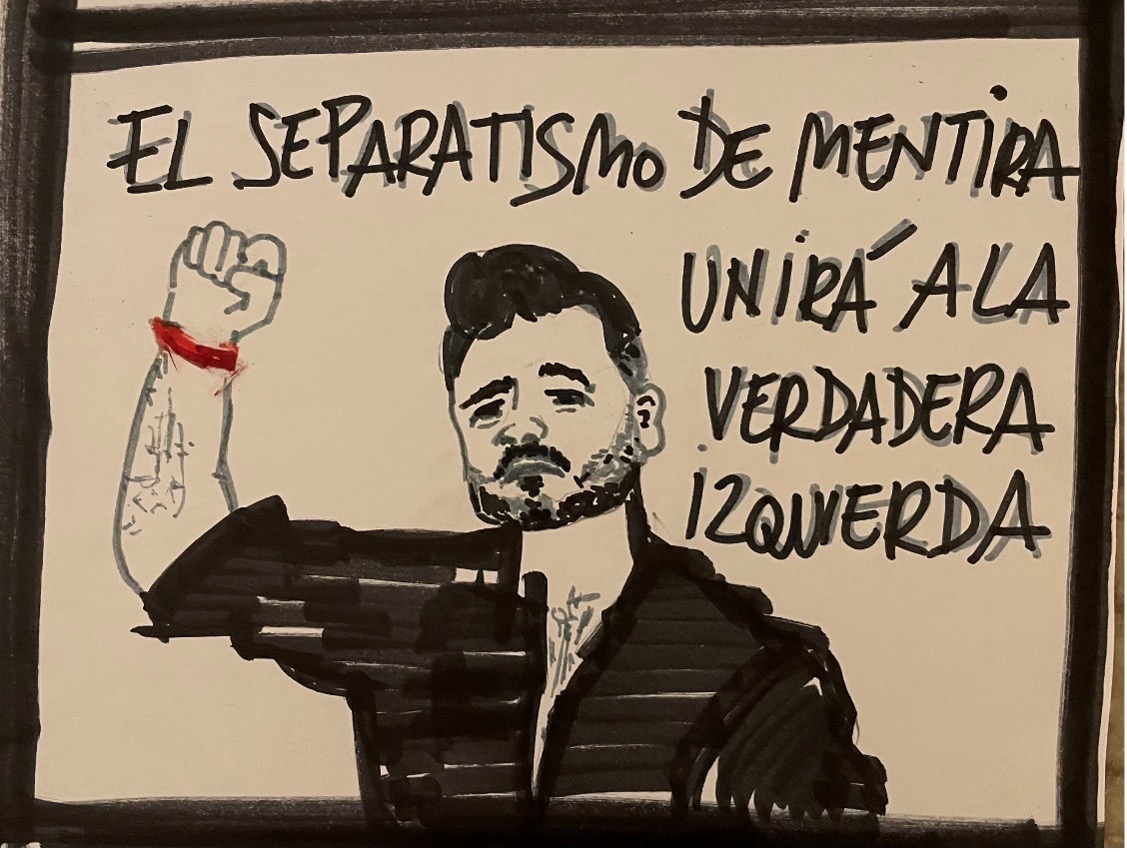 EL SEPARATISMO DE MENTIRA
UNIRÁ A LA
VERDADERA
IZQUIERDA